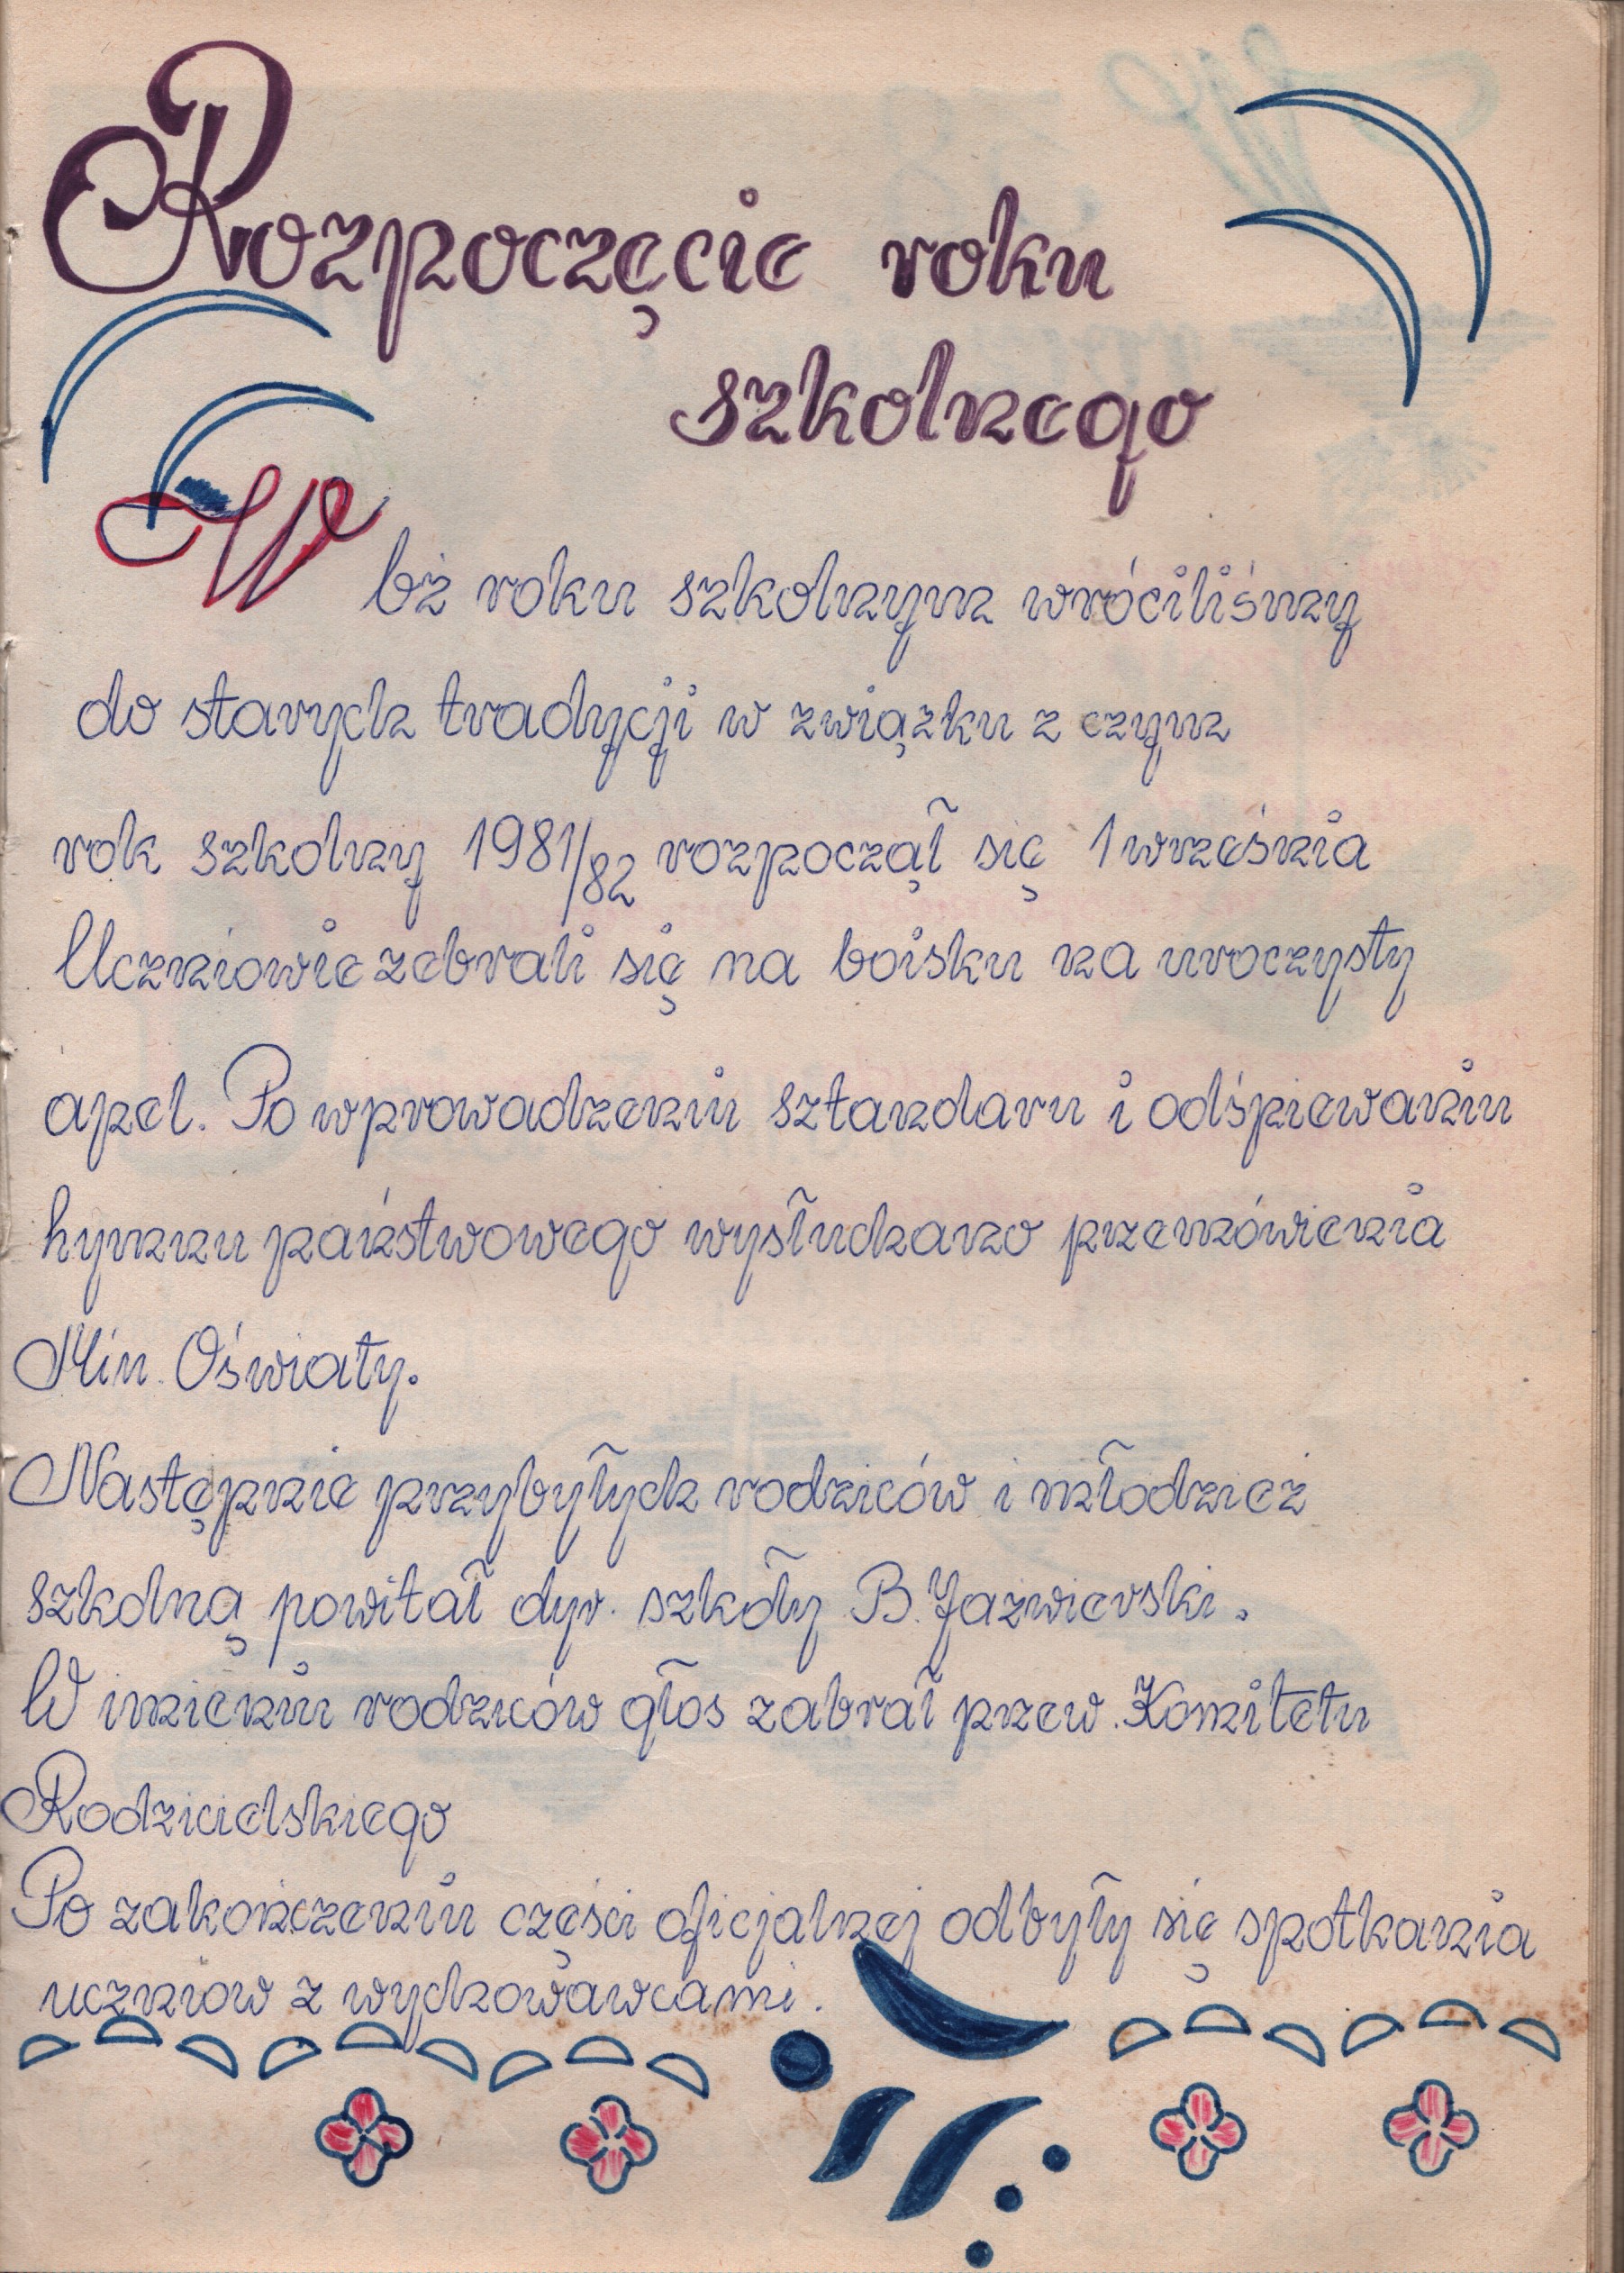 Rozpoczęcie roku
szkolnego
W bż roku szkolnym wróciliśmy
do starych tradycji w związku z czym
rok szkolny 1981/82 rozpoczął się 1 września
Uczniowie zebrali się na boisku na uroczysty
apel. Po wprowadzeniu sztandaru i odśpiewaniu
hymnu państwowego wysłuchano przemówienia
Min. Oświaty.
Następnie przybyłych rodziców i młodzież
szkolną powitał dyr. szkoły B. Jaźwierski.
W imieniu rodziców głos zabrał przew. Komitetu
Rodzicielskiego
Po zakończeniu części oficjalnej odbyły się spotkania
uczniow z wychowawcami.